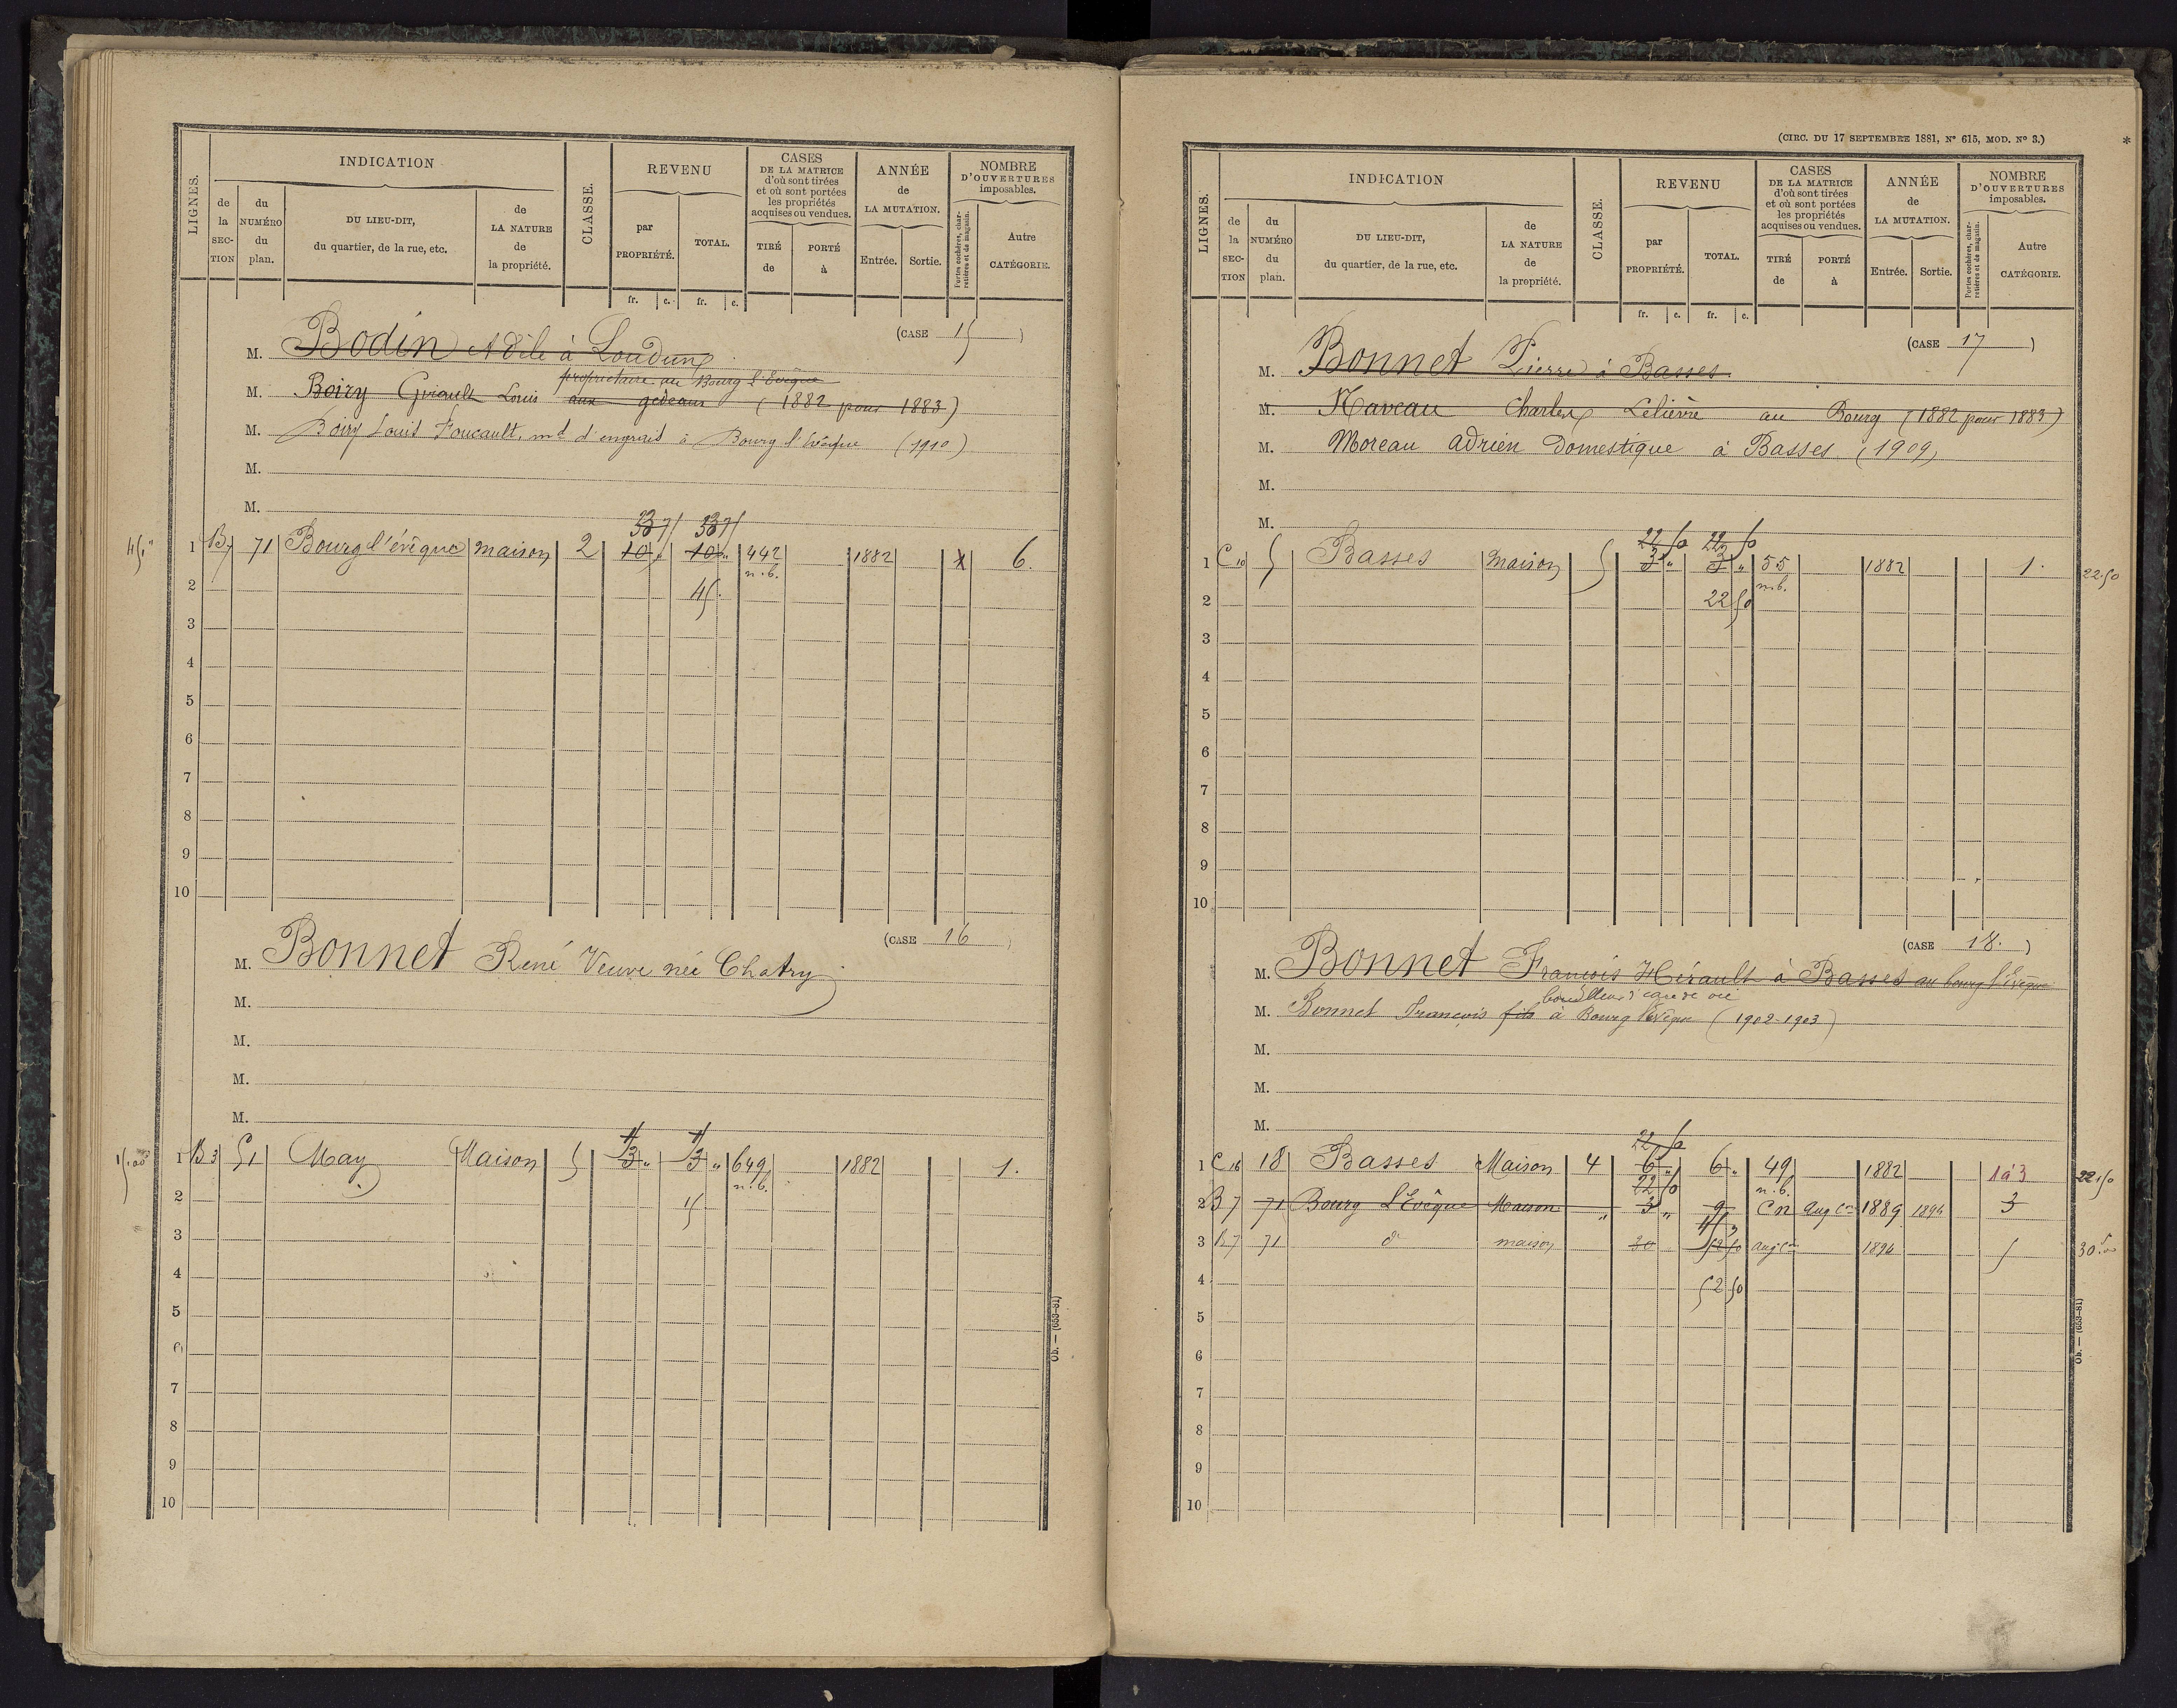 LIGNES. INDICATION CLASSE. REVENU CASES DE LA MATRICE d'où sont tirées et où sont portées les propriétés acquises ou vendues. ANNÉE de LA MUTATION. NOMBRE D'OUVERTURES imposables.
de la SECTION du NUMÉRO du plan. DU LIEU-DIT, du quartier, de la rue, etc. de LA NATURE de la propriété. par PROPRIÉTÉ. TOTAL. TIRÉ de PORTÉ à Entrée. Sortie. Portes cochères, charretières et de magasin. Autre CATÉGORIE.
fr. c. fr. c.
(CASE 15 )
M. Bodin Adèle à Loudun
propriétaire au Bourg l'Evêque
M. Boiry Louis aux gedeaux (1882 pour 1883)
M. Boiry Louis Foucault, md d'engrais à Bourg l'évêque (1910)
M.
M.
45 " 1 B7 71 Bourg l'évêque maison 2 10 " 10 " 442 n.b. 1882 6.
2 45.
3
4
5
6
7
8
9
10
(CASE 16 )
M. Bonnet René Veuve née Chatry
M.
M.
M.
M.
15.00 1 B3 51 May Maison 5 3 " 3 " 649 n.b. 1882 1.
2 15
3
4
5
6
7
8
9
10
Ob. — (653-81)
(CIRC. DU 17 SEPTEMBRE 1881, N° 615, MOD. N° 3.)
*
LIGNES. INDICATION CLASSE. REVENU CASES DE LA MATRICE d'où sont tirées et où sont portées les propriétés acquises ou vendues. ANNÉE de LA MUTATION. NOMBRE D'OUVERTURES imposables.
de la SECTION du NUMÉRO du plan. DU LIEU-DIT, du quartier, de la rue, etc. de LA NATURE de la propriété. par PROPRIÉTÉ. TOTAL. TIRÉ de PORTÉ à Entrée. Sortie. Portes cochères, charretières et de magasin. Autre CATÉGORIE.
fr. c. fr. c.
(CASE 17 )
M. Bonnet Pierre à Basses
M. Naveau Charles Lelièvre au Bourg (1882 pour 1883)
M. Moreau Adrien Domestique à Basses (1909)
M.
M.
22 50 22 50
1 C10 5 Basses Maison 5 3 " 3 " 55 n.b. 1882 1. 22.50
2 22 50
3
4
5
6
7
8
9
10
(CASE 18. )
M. Bonnet François Hérault à Basses au bourg l'Evêque
bouilleur d'eau de vie
M. Bonnet François fils à Bourg l'évêque (1902-1903)
M.
M.
M.
22 50
1 C16 18 Basses Maison 4 6 " 6 " 49 n.b. 1882 1 à 3 22.50
22 50
2 B7 71 Bourg l'Evêque Maison " 3 " 9 C n augon 1889 1896 3
3 B7 71 do maison 30 52 50 augon 1896 5 30.00
4 52 50
5
6
7
8
9
10
Ob. — (653-81)